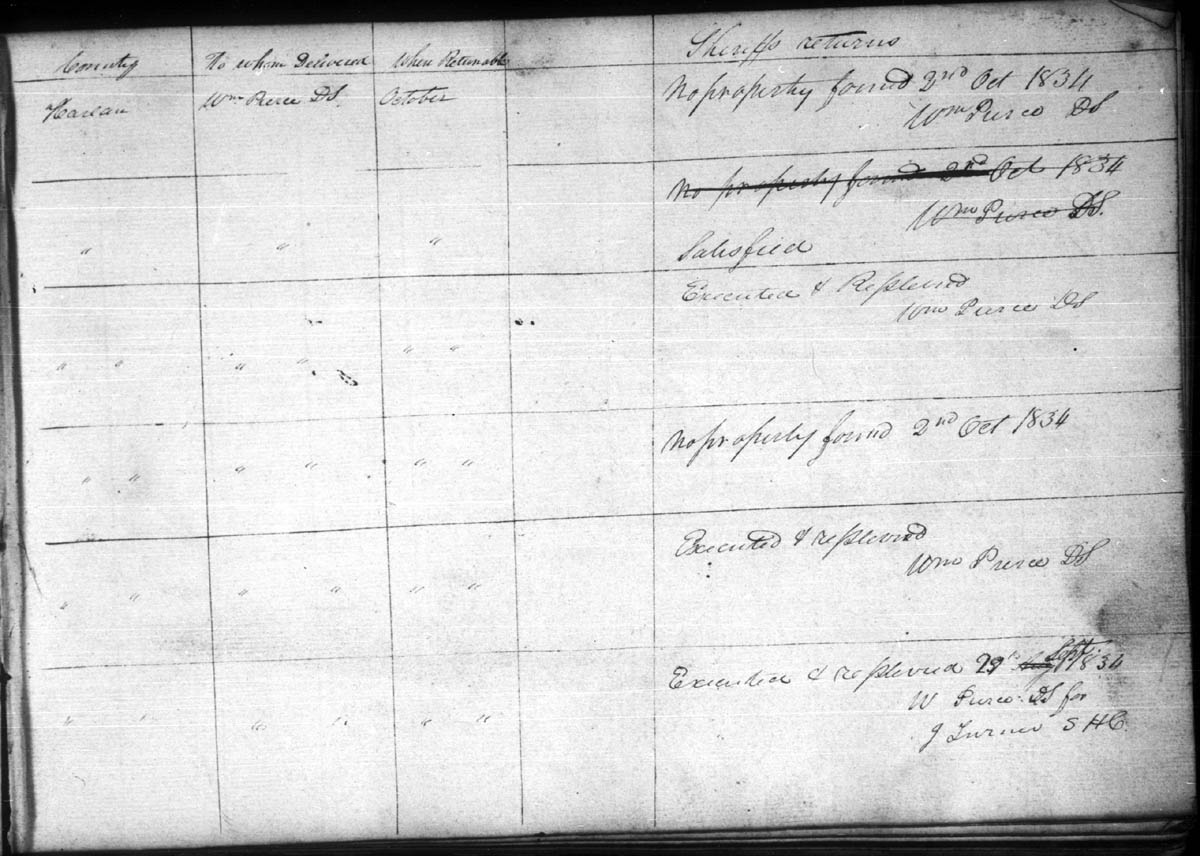 County To whom Delivered When Returnable Sheriffs returns
Harlan Wm Pierce DS. October No property found 2nd Oct 1834
Wm Pierce DS
No property found 2nd Oct 1834
Wm Pierce DS.
" " "
Satisfied
Executed & Replevied
Wm Pierce DS
" " " " " "
No property found 2nd Oct 1834
" " " " " "
Executed & replevied
Wm Pierce DS
" " " " " "
Executed & replevied 29th Aug Sept 1834
" " " " " "
W Pierce DS for
J Turner SHC.